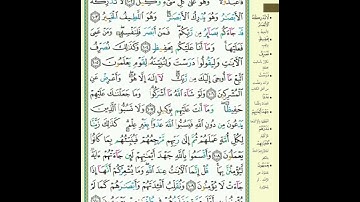 فَٱعۡبُدُوهُۚ وَهُوَ عَلَىٰ كُلِّ شَيۡءٖ وَكِيلٞ ١٠٢ لَّا تُدۡرِكُهُ
ٱلۡأَبۡصَٰرُ وَهُوَ يُدۡرِكُ ٱلۡأَبۡصَٰرَۖ وَهُوَ ٱللَّطِيفُ ٱلۡخَبِيرُ ١٠٣
قَدۡ جَآءَكُم بَصَآئِرُ مِن رَّبِّكُمۡۖ فَمَنۡ أَبۡصَرَ فَلِنَفۡسِهِۦۖ وَمَنۡ عَمِيَ
فَعَلَيۡهَاۚ وَمَآ أَنَا۠ عَلَيۡكُم بِحَفِيظٖ ١٠٤ وَكَذَٰلِكَ نُصَرِّفُ
ٱلۡأٓيَٰتِ وَلِيَقُولُواْ دَرَسۡتَ وَلِنُبَيِّنَهُۥ لِقَوۡمٖ يَعۡلَمُونَ ١٠٥
ٱتَّبِعۡ مَآ أُوحِيَ إِلَيۡكَ مِن رَّبِّكَۖ لَآ إِلَٰهَ إِلَّا هُوَۖ وَأَعۡرِضۡ عَنِ
ٱلۡمُشۡرِكِينَ ١٠٦ وَلَوۡ شَآءَ ٱللَّهُ مَآ أَشۡرَكُواْۗ وَمَا جَعَلۡنَٰكَ عَلَيۡهِمۡ
حَفِيظٗاۖ وَمَآ أَنتَ عَلَيۡهِم بِوَكِيلٖ ١٠٧ وَلَا تَسُبُّواْ ٱلَّذِينَ
يَدۡعُونَ مِن دُونِ ٱللَّهِ فَيَسُبُّواْ ٱللَّهَ عَدۡوَۢا بِغَيۡرِ عِلۡمٖۗ كَذَٰلِكَ زَيَّنَّا
لِكُلِّ أُمَّةٍ عَمَلَهُمۡ ثُمَّ إِلَىٰ رَبِّهِم مَّرۡجِعُهُمۡ فَيُنَبِّئُهُم بِمَا كَانُواْ
يَعۡمَلُونَ ١٠٨ وَأَقۡسَمُواْ بِٱللَّهِ جَهۡدَ أَيۡمَٰنِهِمۡ لَئِن جَآءَتۡهُمۡ ءَايَةٞ
لَّيُؤۡمِنُنَّ بِهَاۚ قُلۡ إِنَّمَا ٱلۡأٓيَٰتُ عِندَ ٱللَّهِۖ وَمَا يُشۡعِرُكُمۡ أَنَّهَآ إِذَا
جَآءَتۡ لَا يُؤۡمِنُونَ ١٠٩ وَنُقَلِّبُ أَفۡـِٔدَتَهُمۡ وَأَبۡصَٰرَهُمۡ كَمَا لَمۡ